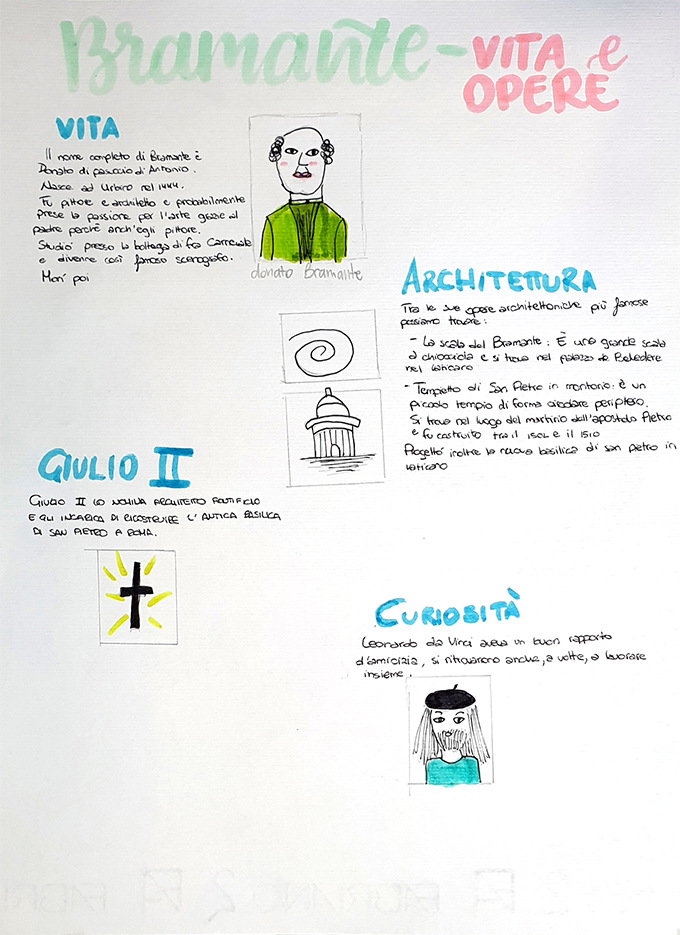 Bramante - VITA e
OPERE
VITA
Il nome completo di Bramante è
Donato di pascuccio di Antonio.
Nasce ad Urbino nel 1444.
Fu pittore e architetto e probabilmente
prese la passione per l'arte grazie al
padre perché anch'egli pittore.
Studiò presso la bottega di fra Carnevale
e divenne così famoso scenografo.
Morì poi
donato Bramante
ARCHITETTURA
Tra le sue opere architettoniche più famose
possiamo trovare:
- La scala del Bramante: È una grande scala
a chiocciola e si trova nel palazzo de Belvedere
nel Vaticano
- Tempietto di San Pietro in montorio: è un
piccolo tempio di forma circolare periptero.
Si trova nel luogo del martirio dell'apostolo Pietro
e fu costruito tra il 1502 e il 1510
Progettò inoltre la nuova basilica di san pietro in
vaticano
GIULIO II
GIULIO II LO NOMINA ARCHITETTO PONTIFICIO
E GLI INCARICA DI RICOSTRUIRE L'ANTICA BASILICA
DI SAN PIETRO A ROMA.
CURIOSITÀ
Leonardo da Vinci aveva un buon rapporto
d'amicizia, si ritrovarono anche, a volte, a lavorare
insieme.
FABRIANO